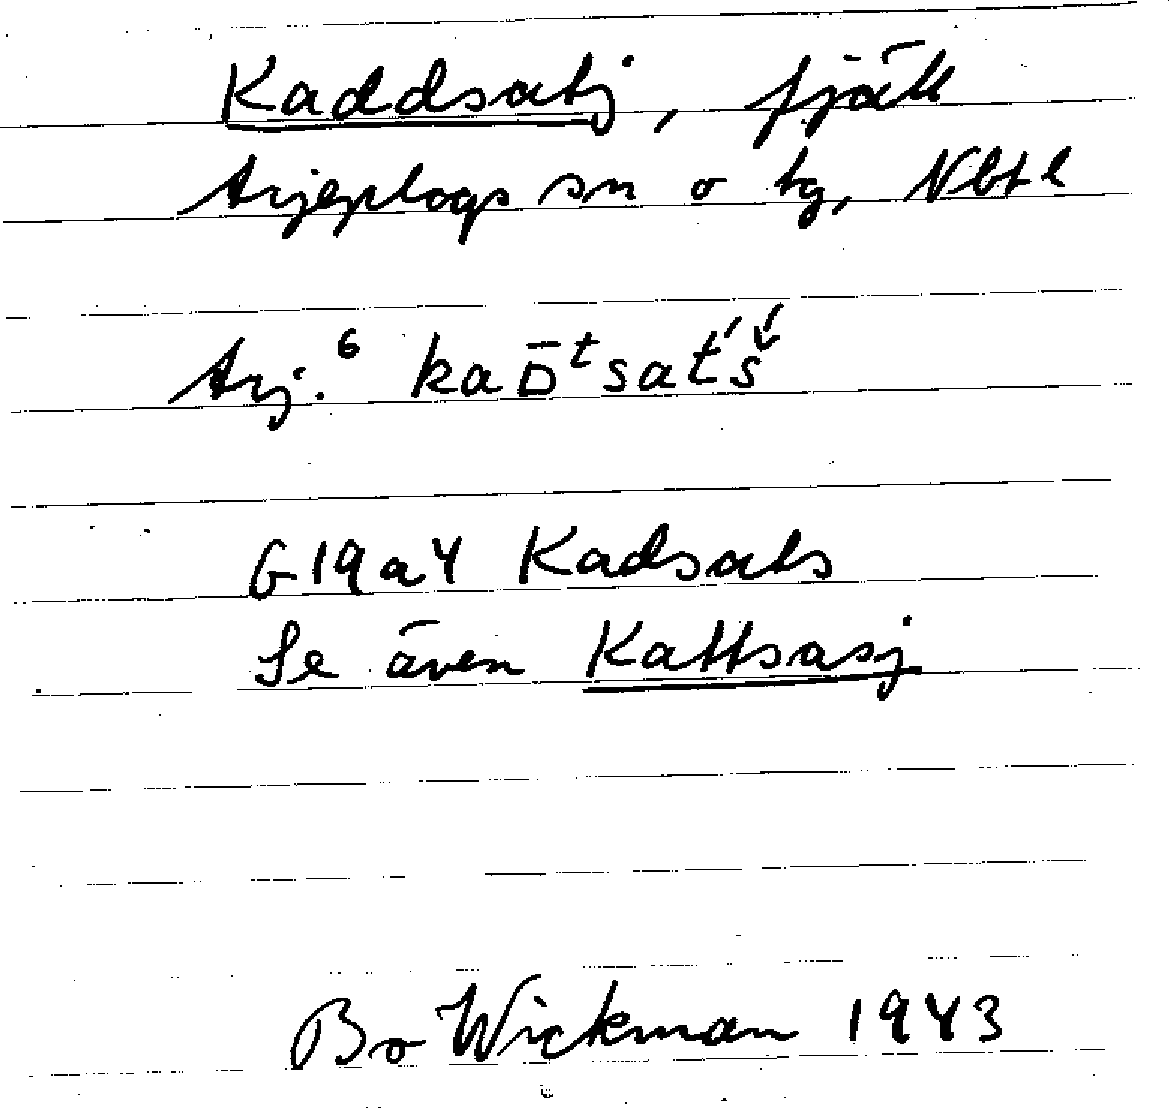 Kaddsatj, fjäll
Arjeplogs sn o tg, Nbt l
Arj.⁶ kaD̄ᵗsat́š́
G 19 a 4 Kadsats
Se även Kattsasj
Bo Wickman 1943